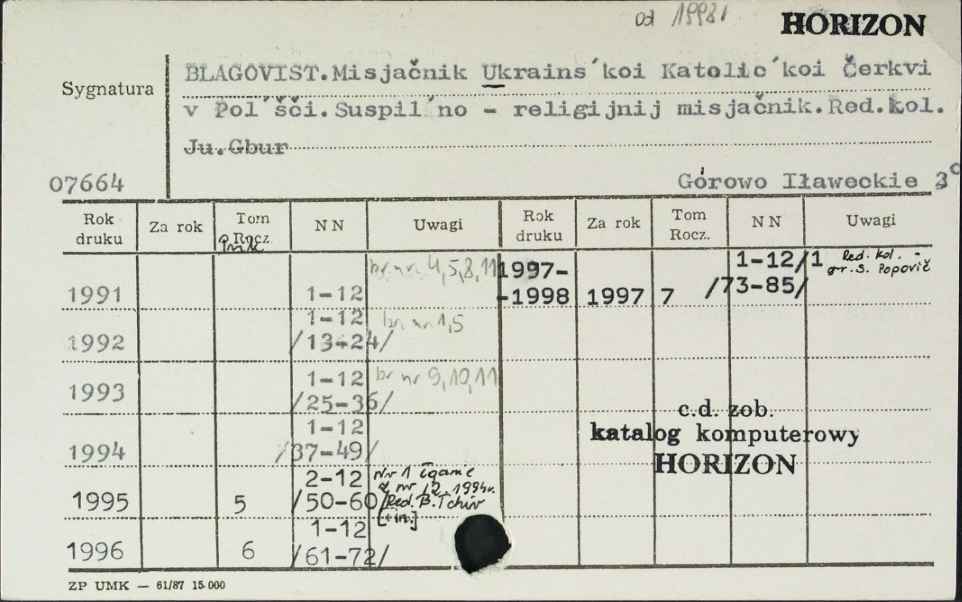 od 1998r
HORIZON
Sygnatura
BLAGOVIST.Misjačnik Ukrains´koi Katolic´koi Čerkvi
v Pol´šči.Suspil´no - religijnij misjačnik.Red.kol.
Ju.Gbur
07664
Górowo Iławeckie 3°
Rok druku Za rok Tom Rocz. NN Uwagi Rok druku Za rok Tom Rocz. NN Uwagi
1991 1-12 br. nr. 4,5,8,11
1992 1-12 /13-24/ br. nr 1,5
1993 1-12 /25-36/ br nr 9,10,11
1994 1-12 /37-49/
1995 5 2-12 /50-60/ Nr 1 łączne z nr 12 1994r. Red. B. Tchir [+in.]
1996 6 1-12 /61-72/
1997-
-1998 1997 7 1-12/1 /73-85/ Red. kol. - gr. S. Popovič
c.d. zob.
katalog komputerowy
HORIZON
ZP UMK — 61/87 15 000